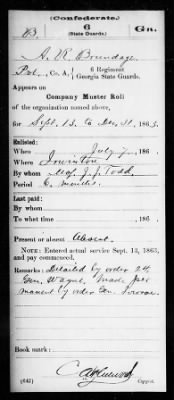 (Confederate.)
B 6 Gn.
(State Guards.)
A. R. Brundage
Pvt., Co. A, 6 Regiment
Georgia State Guards.
Appears on
Company Muster Roll
of the organization named above,
for Sept. 13. to Dec. 31, 1863.
Enlisted:
When July 186 .
Where Irwinton
By whom Maj. J. J. Todd
Period 6 months.
Last paid:
By whom
To what time , 186 .
Present or absent Absent.
NOTE: Entered actual service Sept. 13, 1863,
and pay commenced.
Remarks: Detailed by order of
Gen. Wayne, made per
manent by order Gen.
Book mark:
(642) Copyist.